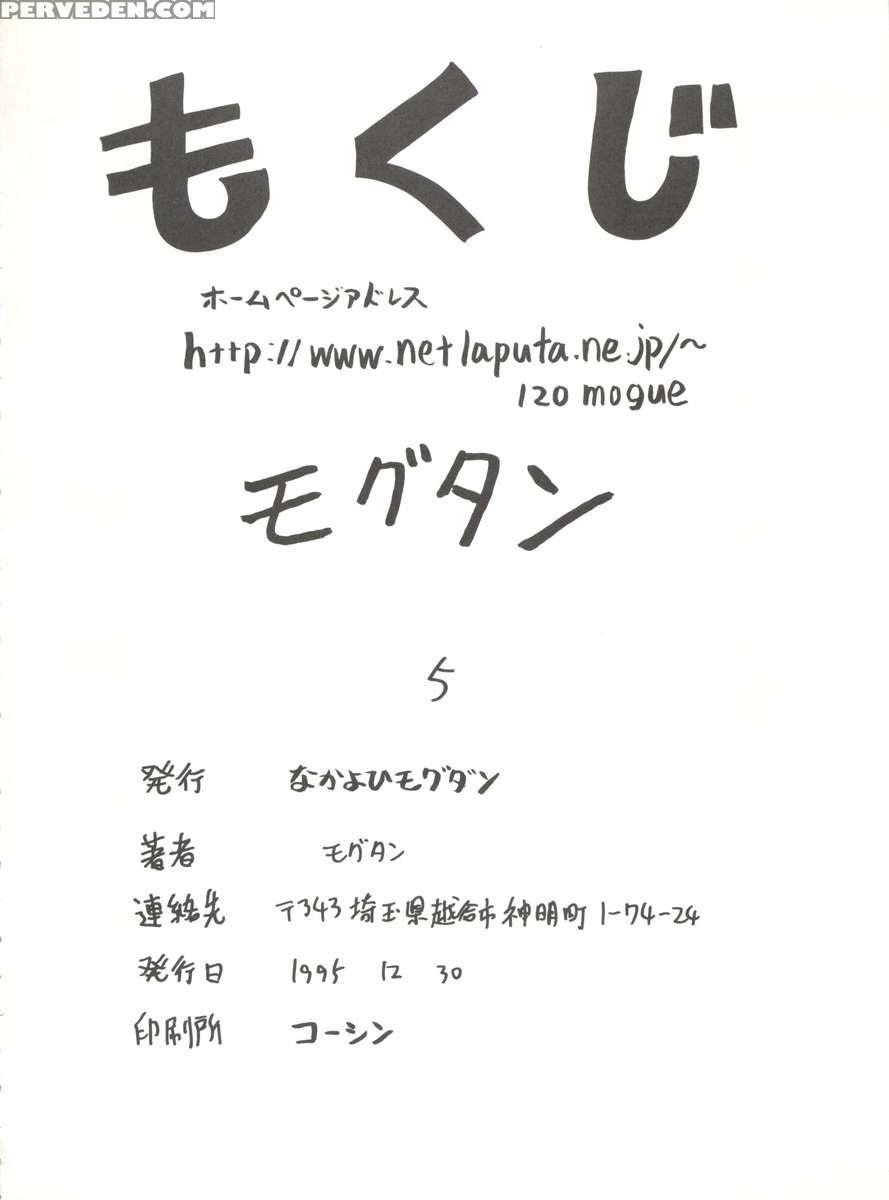 PERVEDEN.COM
もくじ
ホームページアドレス
http://www.netlaputa.ne.jp/~
120mogue
モグタン
5
発行 なかよひモグダン
著者 モグタン
連絡先 〒343埼玉県越谷市神明町1-74-24
発行日 1995 12 30
印刷所 コーシン